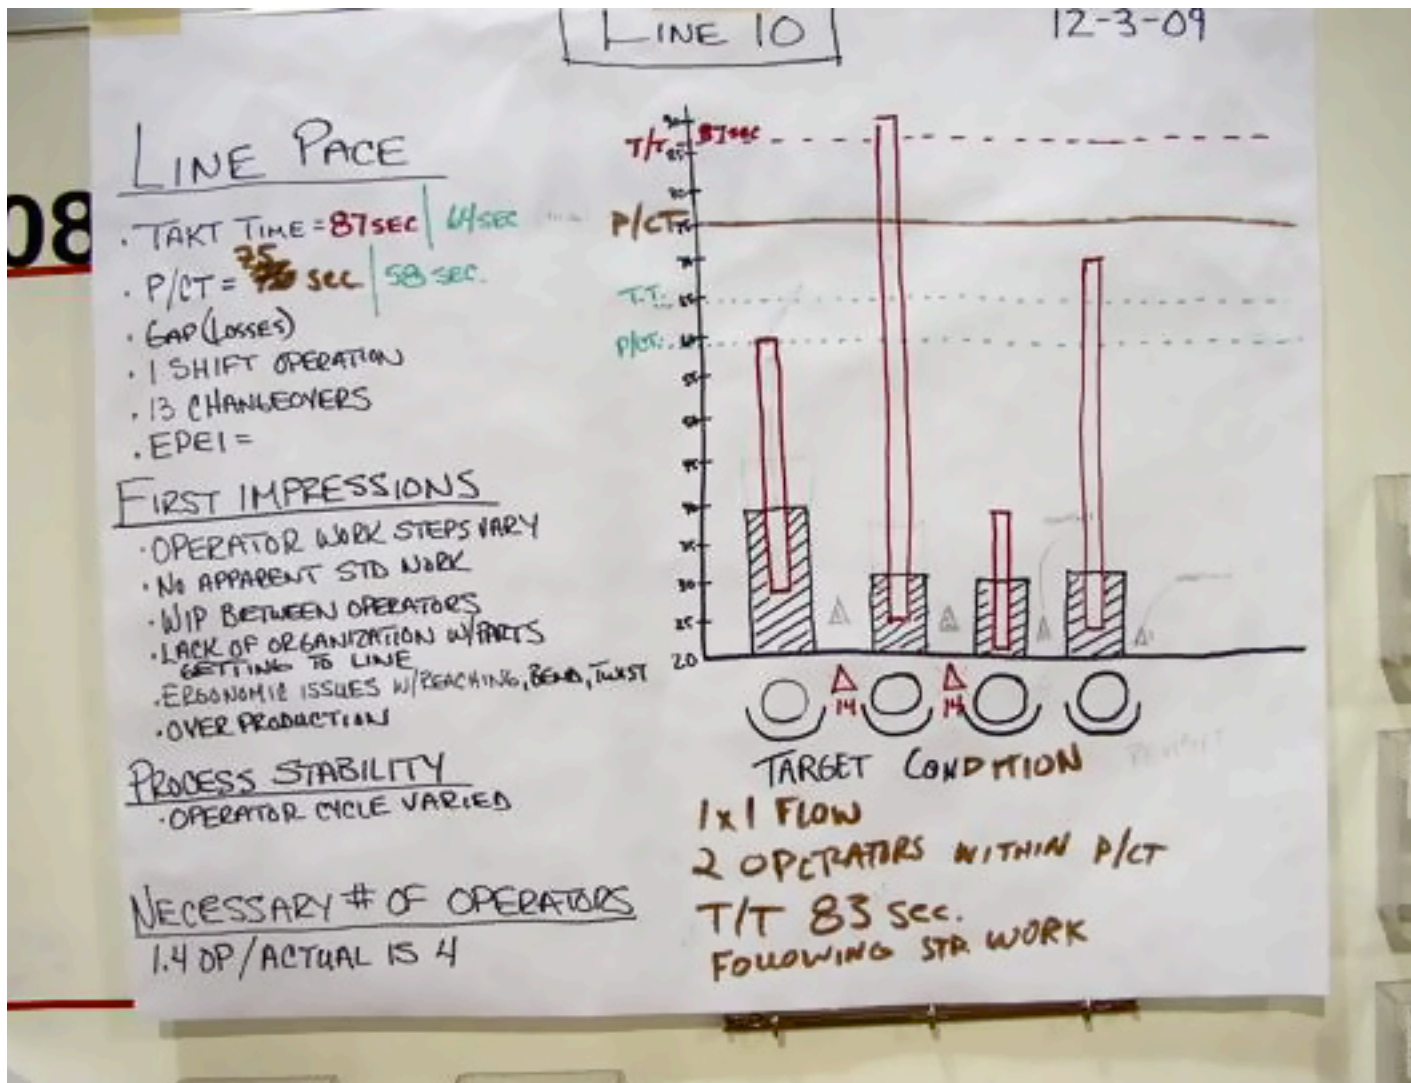 LINE 10
12-3-09
08
LINE PACE
· TAKT TIME = 87 SEC | 64 SEC
· P/CT = 75 SEC | 58 SEC.
· GAP (LOSSES)
· 1 SHIFT OPERATION
· 13 CHANGEOVERS
· EPEI =
FIRST IMPRESSIONS
· OPERATOR WORK STEPS VARY
· NO APPARENT STD WORK
· WIP BETWEEN OPERATORS
· LACK OF ORGANIZATION W/PARTS
GETTING TO LINE
· ERGONOMIC ISSUES W/REACHING, BEND, TWIST
· OVER PRODUCTION
PROCESS STABILITY
· OPERATOR CYCLE VARIED
NECESSARY # OF OPERATORS
1.4 OP/ACTUAL IS 4
90
T/T 85 87 sec
80
P/CT 75
70
T.T. 65
P/CT. 60
55
50
45
40
35
30
25
20
14 14
TARGET CONDITION
1x1 FLOW
2 OPERATORS WITHIN P/CT
T/T 83 sec.
FOLLOWING STD. WORK